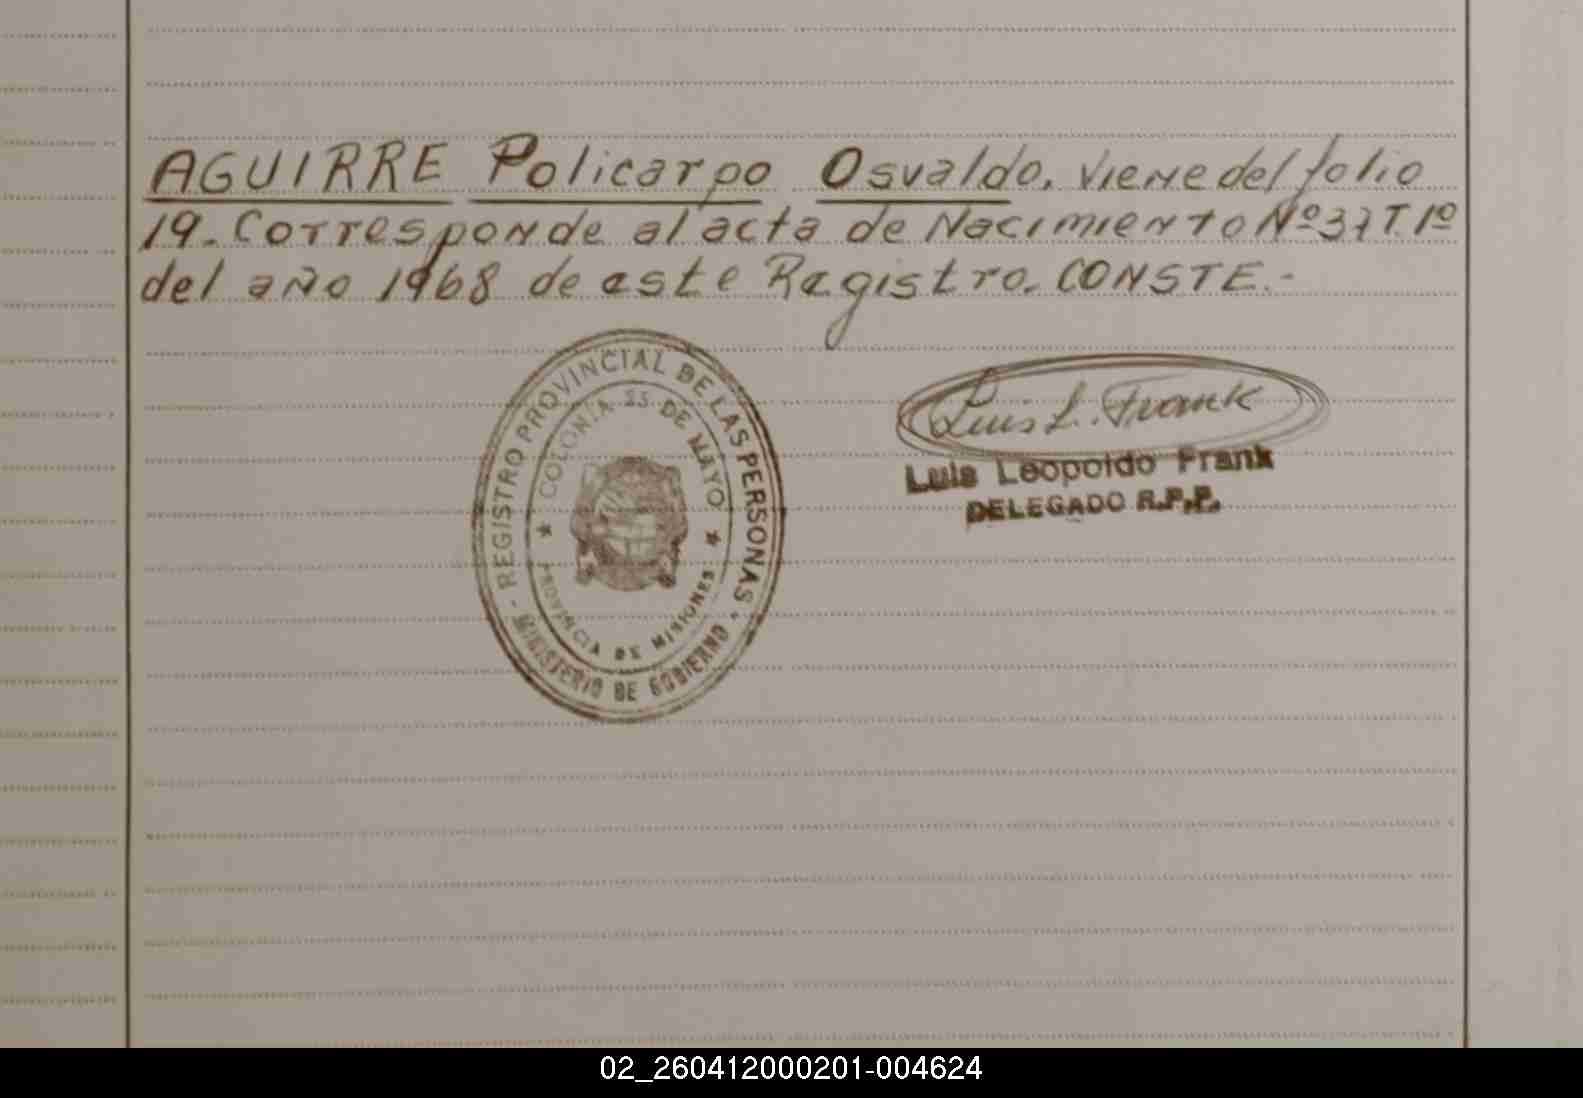 AGUIRRE Policarpo Osvaldo. Viene del folio
19. Corresponde al acta de Nacimiento Nº 37 T. 1º
del año 1968 de este Registro. CONSTE.-
- REGISTRO PROVINCIAL DE LAS PERSONAS -
MINISTERIO DE GOBIERNO
COLONIA 25 DE MAYO
PROVINCIA DE MISIONES
Luis L. Frank
Luis Leopoldo Frank
DELEGADO R.P.P.
02_260412000201-004624